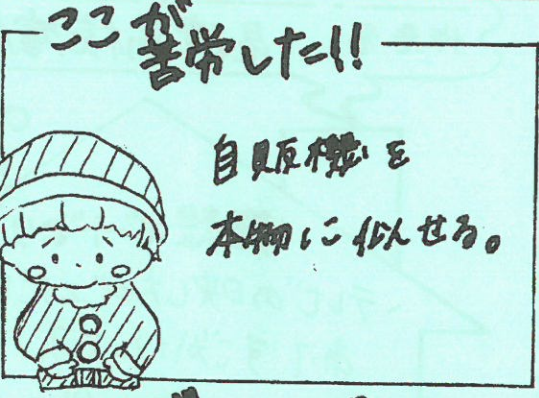 ここが
苦労した!!
自販機を
本物に似せる。